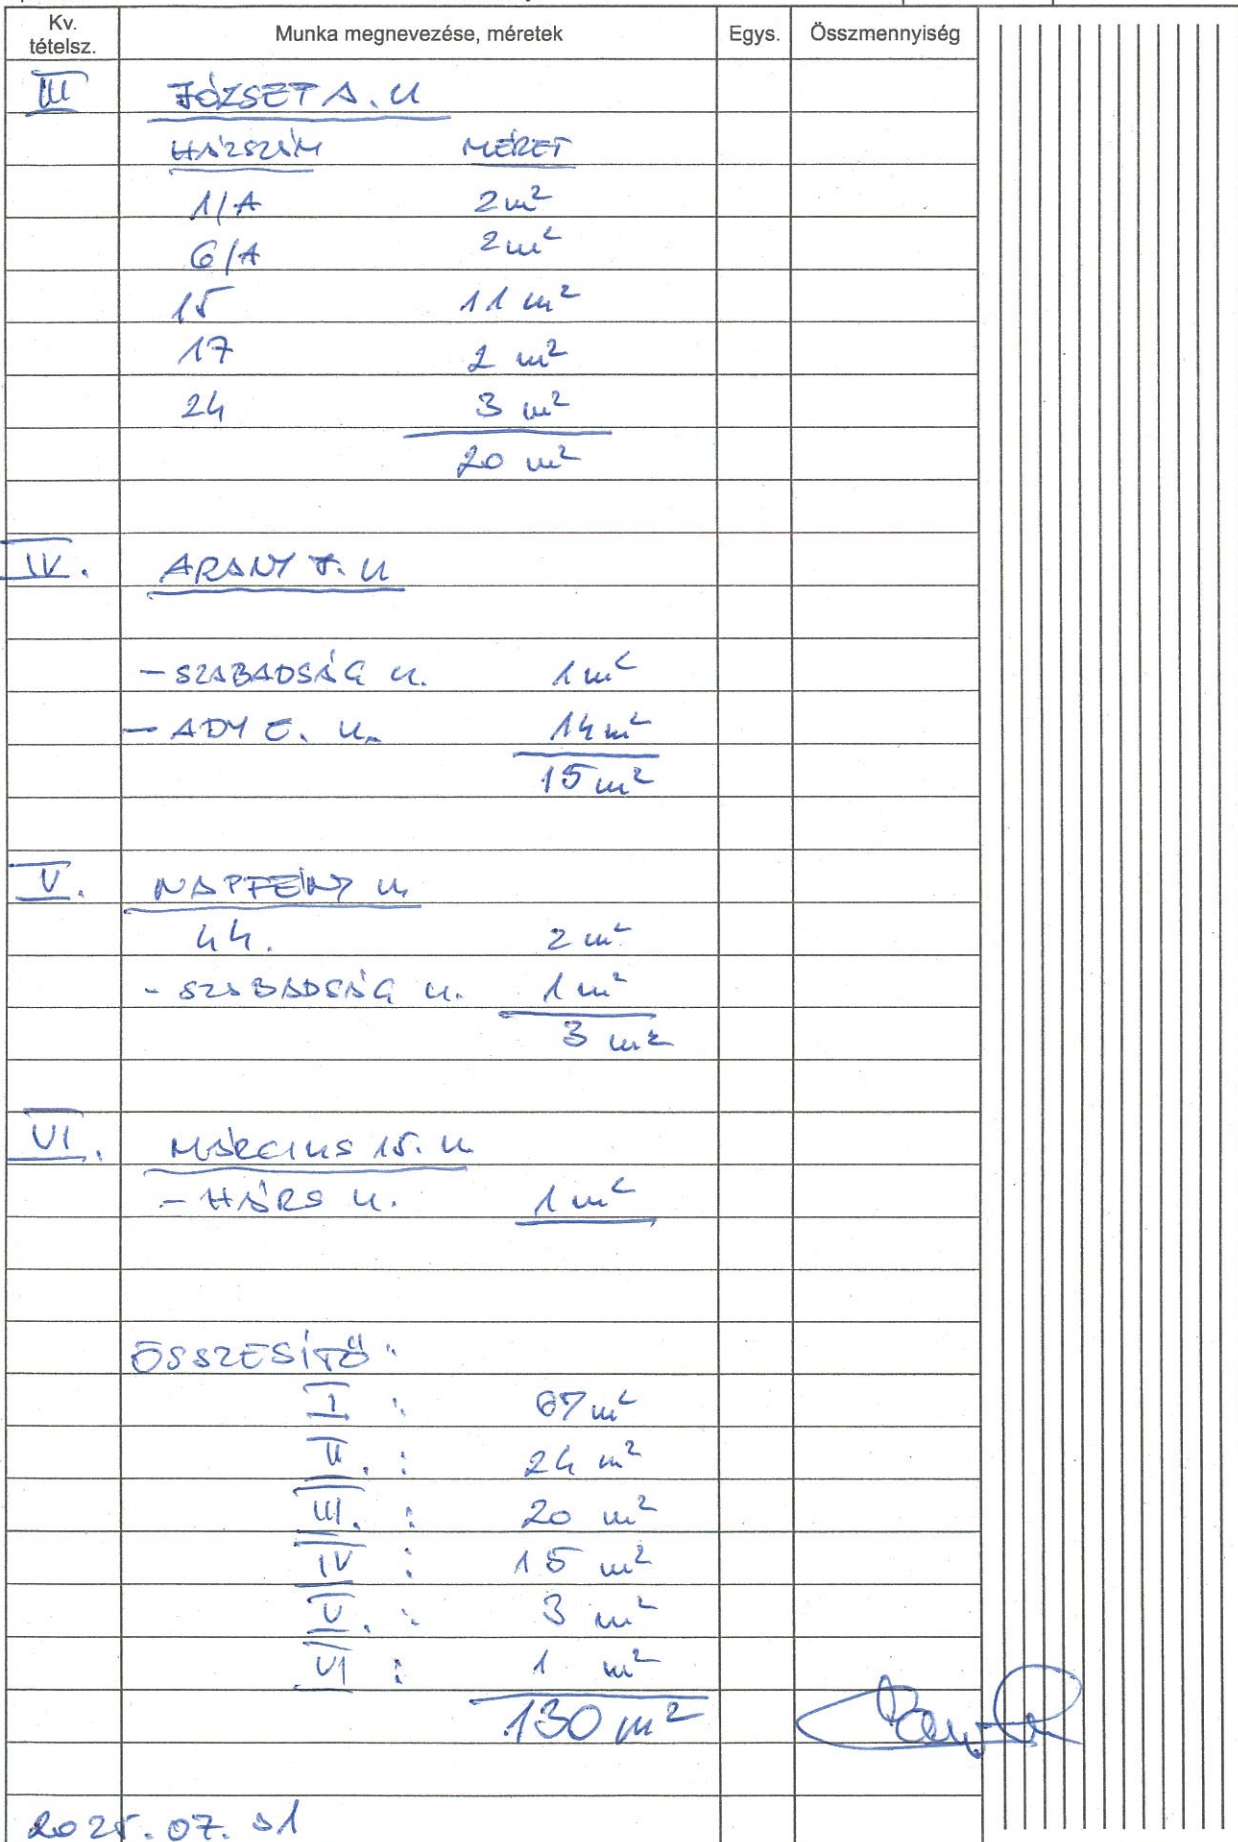 Kv. tételsz. Munka megnevezése, méretek Egys. Összmennyiség
III JÓZSEF A. U
HÁZSZÁM MÉRET
1/A 2 m²
6/A 2 m²
15 11 m²
17 2 m²
24 3 m²
20 m²
IV. ARANY J. U
- SZABADSÁG U. 1 m²
- ADY E. U. 14 m²
15 m²
V. NAPFÉNY U
44. 2 m²
- SZABADSÁG U. 1 m²
3 m²
VI. MÁRCIUS 15. U
- HÁRS U. 1 m²
ÖSSZESÍTŐ:
I : 67 m²
II. : 24 m²
III. : 20 m²
IV : 15 m²
V. : 3 m²
VI : 1 m²
130 m²
2025. 07.